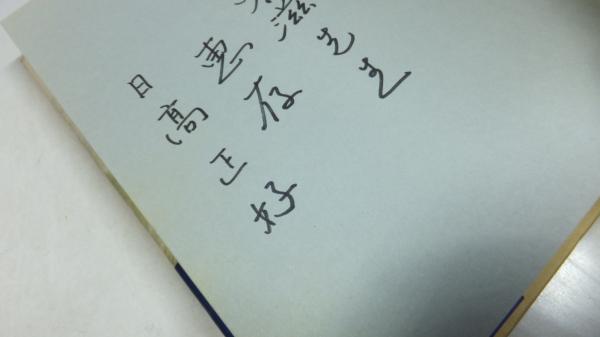 滋先生
惠存
日高正好